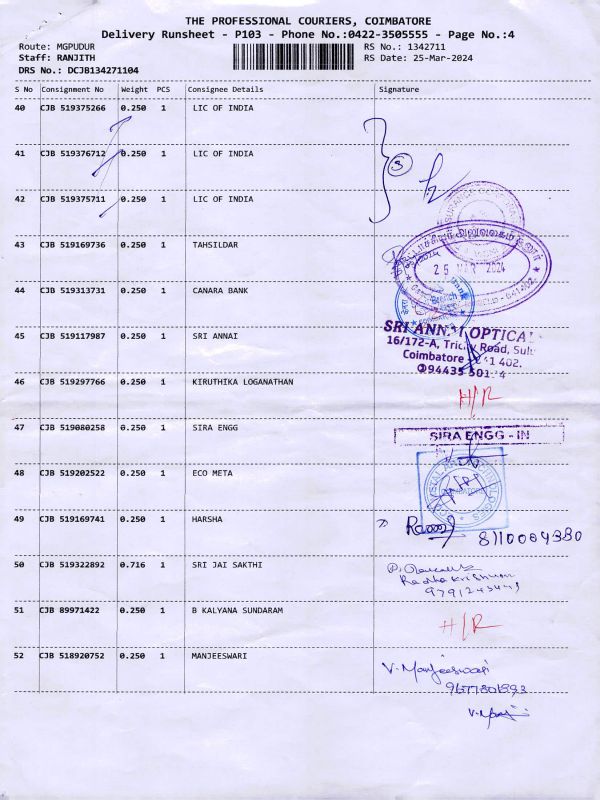 THE PROFESSIONAL COURIERS, COIMBATORE
Delivery Runsheet - P103 - Phone No.:0422-3505555 - Page No.:4
Route: MGPUDUR RS No.: 1342711
Staff: RANJITH RS Date: 25-Mar-2024
DRS No.: DCJB134271104
S No Consignment No Weight PCS Consignee Details Signature
40 CJB 519375266 0.250 1 LIC OF INDIA
41 CJB 519376712 0.250 1 LIC OF INDIA
3
42 CJB 519375711 0.250 1 LIC OF INDIA
43 CJB 519169736 0.250 1 TAHSILDAR
25 MAR 2024
44 CJB 519313731 0.250 1 CANARA BANK
SRI ANNAI OPTICAL
45 CJB 519117987 0.250 1 SRI ANNAI
16/172-A, Trichy Road, Sulur
Coimbatore - 641 402.
46 CJB 519297766 0.250 1 KIRUTHIKA LOGANATHAN
H/R
47 CJB 519080258 0.250 1 SIRA ENGG
SIRA ENGG - IN
48 CJB 519202522 0.250 1 ECO META
49 CJB 519169741 0.250 1 HARSHA
8110004330
50 CJB 519322892 0.716 1 SRI JAI SAKTHI
Radha Krishnan
51 CJB 89971422 0.250 1 B KALYANA SUNDARAM
H/R
52 CJB 518920752 0.250 1 MANJEESWARI
V. Manjeeswari